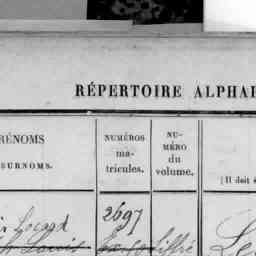 RÉPERTOIRE ALPHA
RÉNOMS
SURNOMS.
NUMÉROS
ma-
tricules.
NU-
MÉRO
du
volume.
[Il doit é
2697
Louis